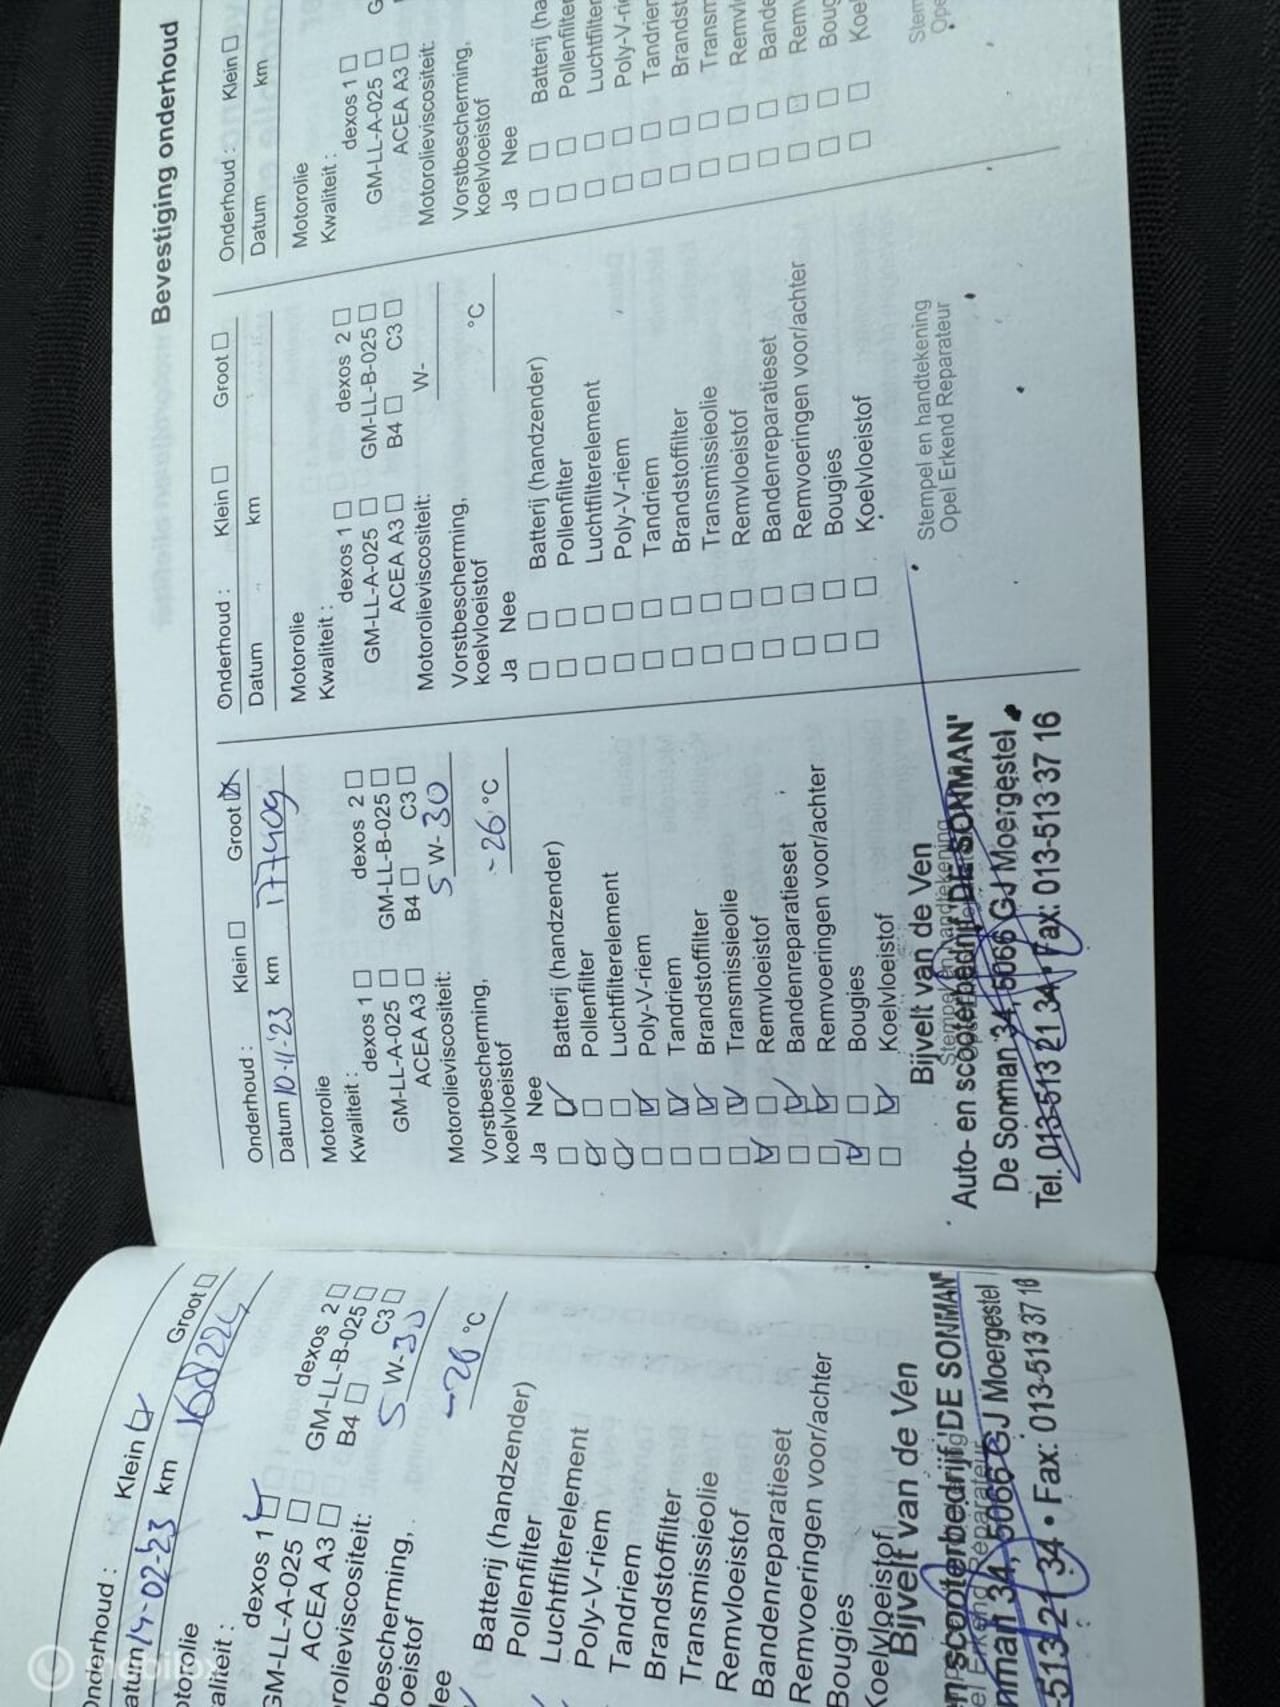 Bevestiging onderhoud
Onderhoud : Klein Groot
Datum 14-02-23 km
dexos 1 dexos 2
GM-LL-A-025 GM-LL-B-025
ACEA A3 B4 C3
5 W-30
°C
Batterij (handzender)
Pollenfilter
Luchtfilterelement
Poly-V-riem
Tandriem
Brandstoffilter
Transmissieolie
Remvloeistof
Bandenreparatieset
Remvoeringen voor/achter
Bougies
Koelvloeistof
Bijvelt van de Ven
scooterbedrijf 'DE SONMAN'
34, 5066 GJ Moergestel
-513 21 34 • Fax: 013-513 37 16
Onderhoud : Klein Groot
Datum 10-11-'23 km 177409
Motorolie
Kwaliteit :
dexos 1 dexos 2
GM-LL-A-025 GM-LL-B-025
ACEA A3 B4 C3
Motorolieviscositeit: 5 W-30
Vorstbescherming,
koelvloeistof -26 °C
Ja Nee
Batterij (handzender)
Pollenfilter
Luchtfilterelement
Poly-V-riem
Tandriem
Brandstoffilter
Transmissieolie
Remvloeistof
Bandenreparatieset
Remvoeringen voor/achter
Bougies
Koelvloeistof
Stempel en handtekening
Bijvelt van de Ven
Auto- en scooterbedrijf 'DE SONMAN'
De Sonman 34, 5066 GJ Moergestel
Tel. 013-513 21 34 • Fax: 013-513 37 16
Onderhoud : Klein Groot
Datum km
Motorolie
Kwaliteit :
dexos 1 dexos 2
GM-LL-A-025 GM-LL-B-025
ACEA A3 B4 C3
Motorolieviscositeit: W-
Vorstbescherming,
koelvloeistof °C
Ja Nee
Batterij (handzender)
Pollenfilter
Luchtfilterelement
Poly-V-riem
Tandriem
Brandstoffilter
Transmissieolie
Remvloeistof
Bandenreparatieset
Remvoeringen voor/achter
Bougies
Koelvloeistof
Stempel en handtekening
Opel Erkend Reparateur
Onderhoud : Klein
Datum km
Motorolie
Kwaliteit :
dexos 1
GM-LL-A-025
ACEA A3
Motorolieviscositeit:
Vorstbescherming,
koelvloeistof
Ja Nee
Batterij (ha
Pollenfilter
Luchtfilter
Poly-V-rie
Tandrien
Brandst
Transm
Remvl
Bande
Remv
Boug
Koel